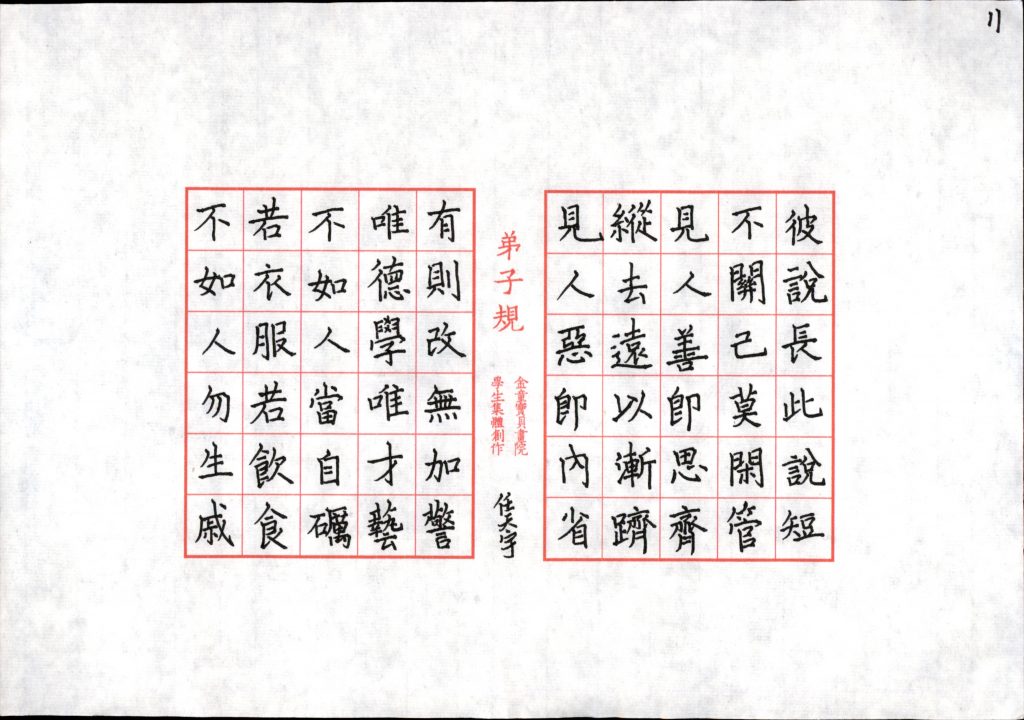 11
彼說長此說短
不關己莫閑管
見人善即思齊
縱去遠以漸躋
見人惡即內省
弟子規
金童寶貝畫院
學生集體創作
任天宇
有則改無加警
唯德學唯才藝
不如人當自礪
若衣服若飲食
不如人勿生戚